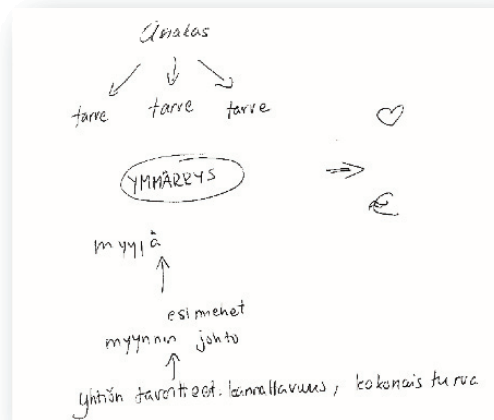 Asiakas
tarve tarve tarve
YMMÄRRYS
€
myyjä
esimehet
myynnin johto
yhtiön tavoitteet. kannattavuus, kokonais turva